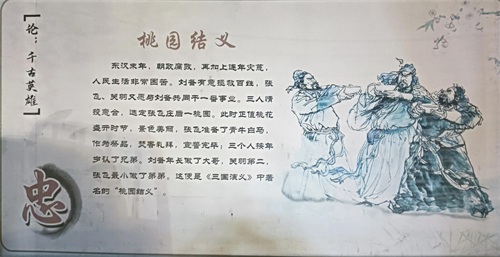 论：千古英雄
忠
桃园结义
东汉末年，朝政腐败，再加上连年灾荒，
人民生活非常困苦。刘备有意拯救百姓，张
飞、关羽又愿与刘备共同干一番事业。三人情
投意合，选定张飞庄后一桃园。此时正值桃花
盛开时节，景色美丽，张飞准备了青牛白马，
作为祭品，焚香礼拜，宣誓完毕；三个人按年
岁认了兄弟。刘备年长做了大哥，关羽第二，
张飞最小做了弟弟。这便是《三国演义》中著
名的“桃园结义”